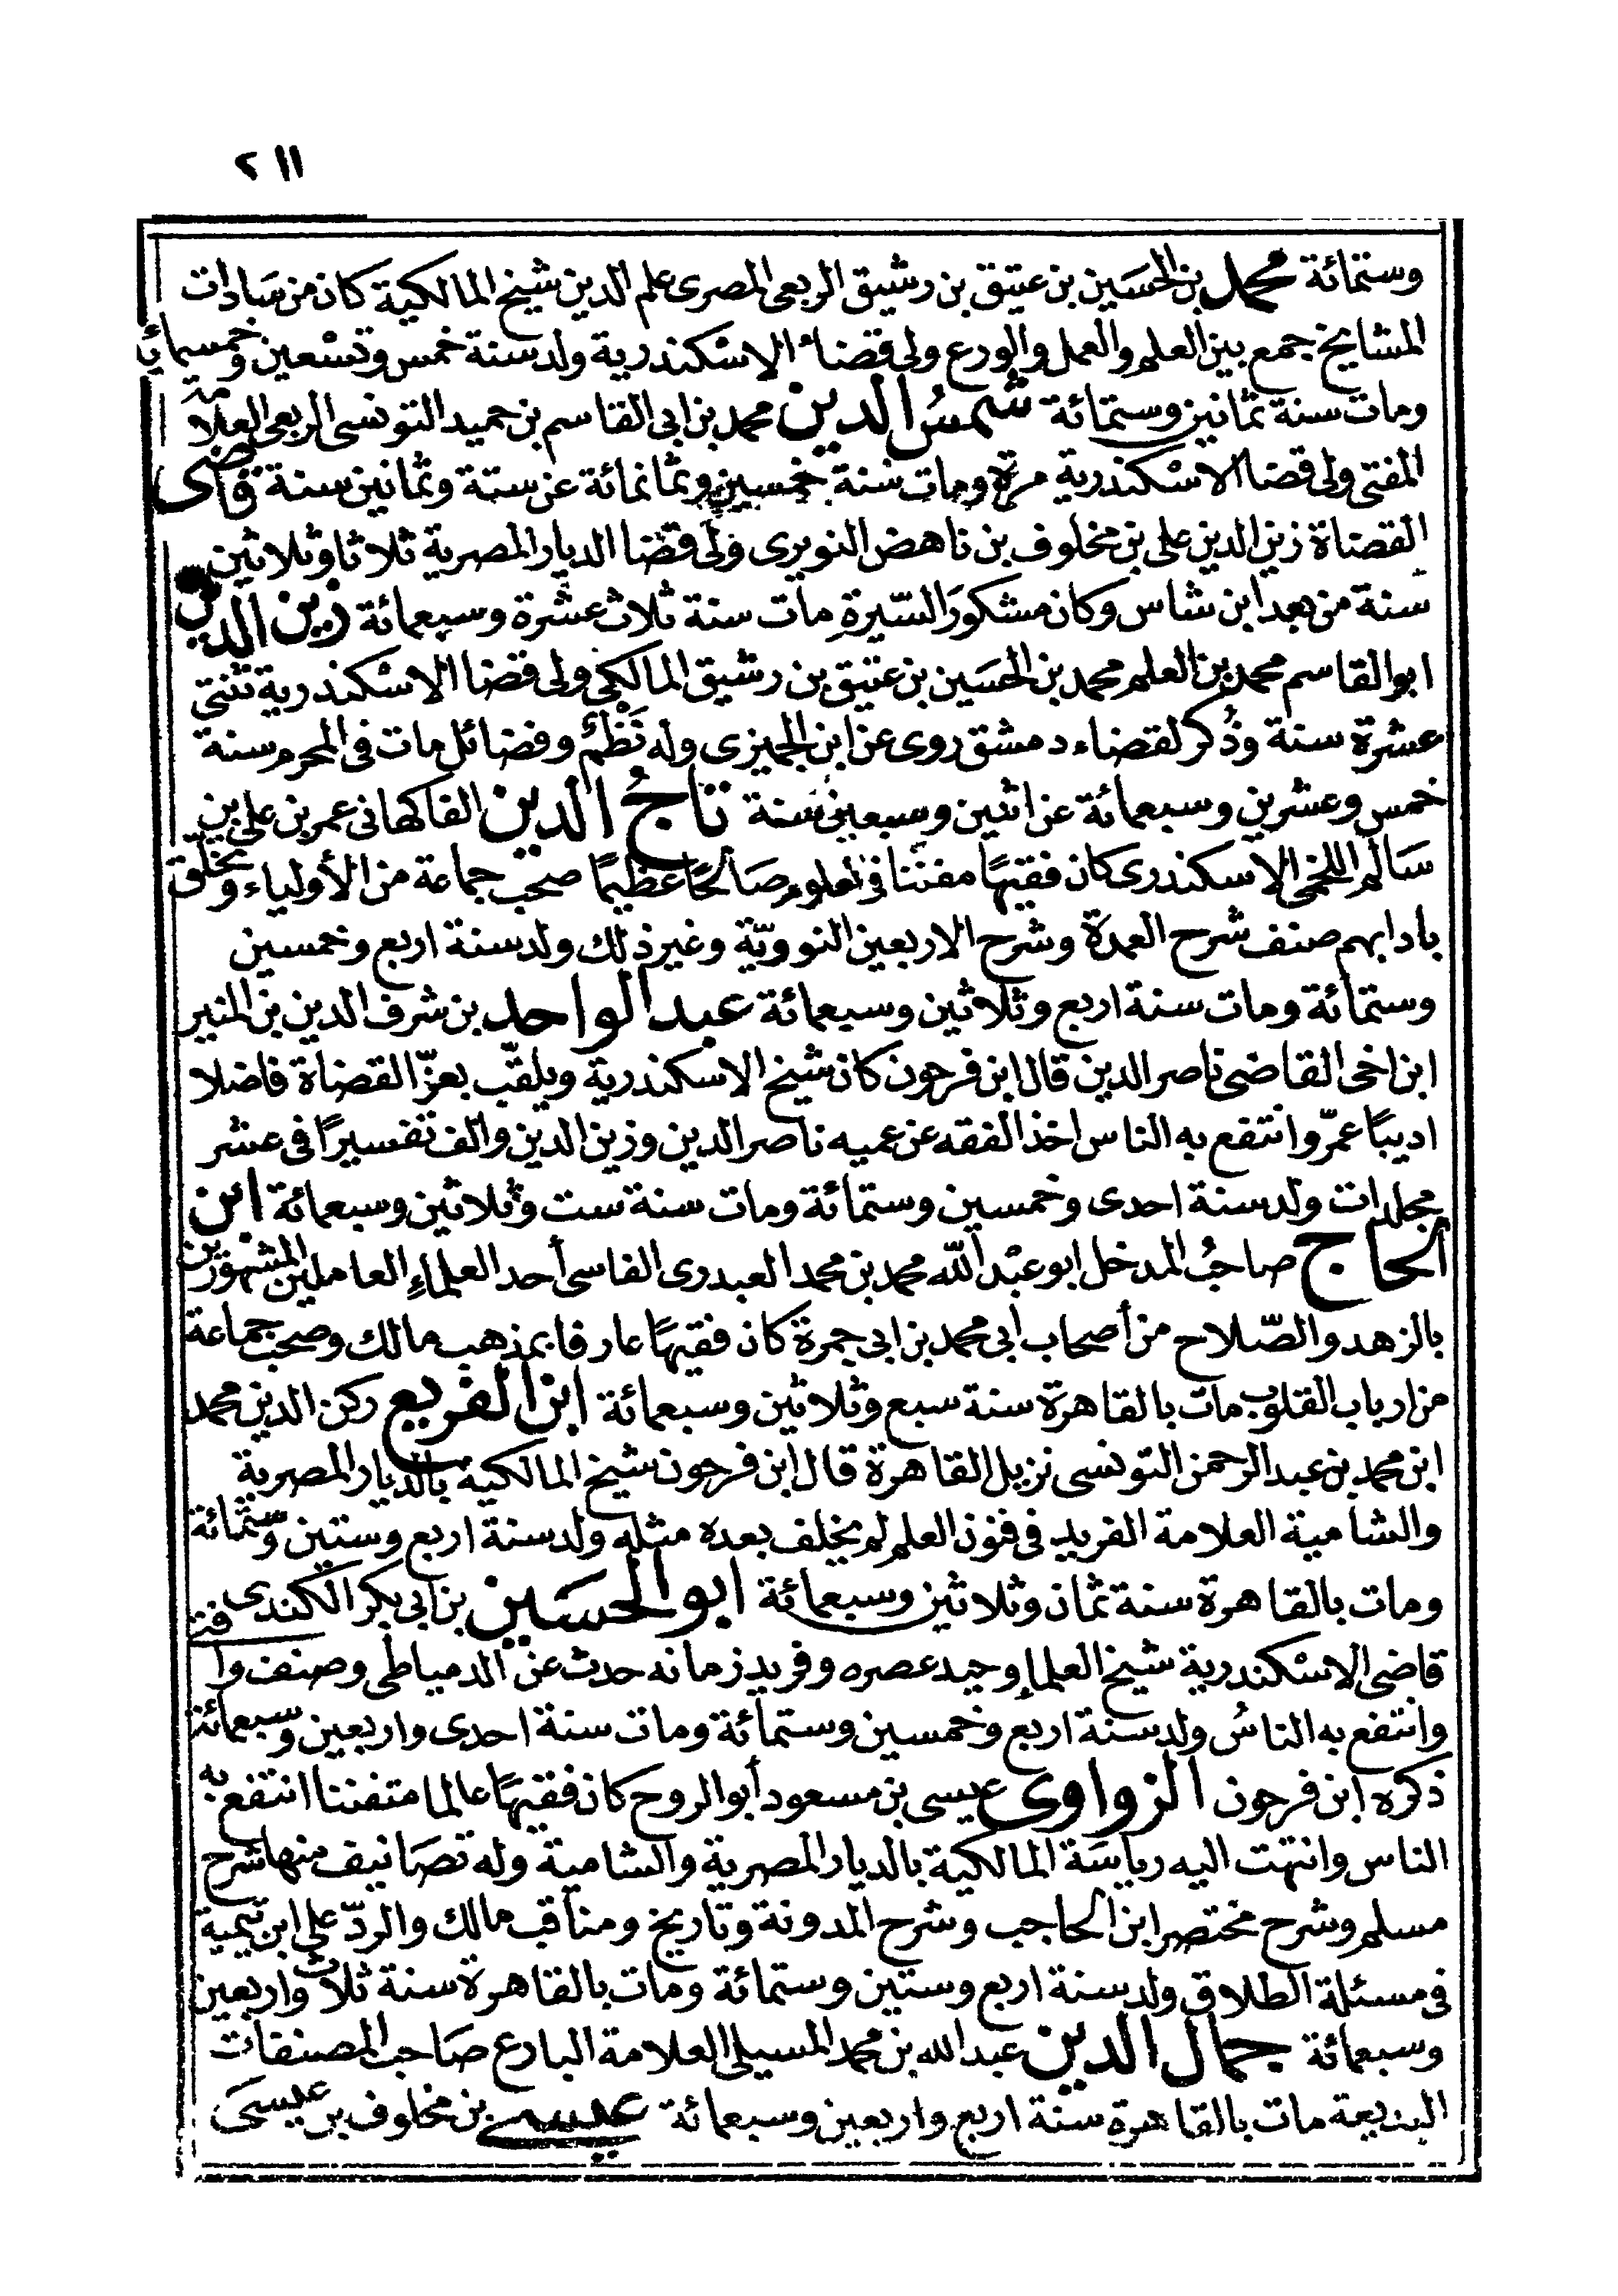 ٢١١
وستمائة محمد بن الحسين بن عتيق بن رشيق الربعى المصرى علم الدين شيخ المالكية كان من سادات
المشايخ جمع بين العلم والعمل والورع ولى قضاء الاسكندرية ولد سنة خمس وتسعين وخمسمائة
ومات سنة ثمانين وستمائة شمسُ الدين محمد بن ابى القاسم بن حميد التونسى الربعى العلامة
المفتى ولى قضا الاسكندرية مرة ومات سنة خمسين وثمانمائة عن ستة وثمانين سنة قاضى
القضاة زين الدين على بن مخلوف بن ناهض النويرى ولى قضا الديار المصرية ثلاثا وثلاثين
سنة من بعد ابن شاس وكان مشكورَ السّيرةِ مات سنة ثلاث عشرة وسبعمائة زين الدين
ابو القاسم محمد بن العلم محمد بن الحسين بن عتيق بن رشيق المالكي ولى قضا الاسكندرية ثنتى
عشرة سنة وذُكر لقضاء دمشق روى عن ابن الجميزى وله نَظْمٌ وفضائل مات فى المحرم سنة
خمس وعشرين وسبعمائة عن اثنين وسبعين سنة تاجُ الدين الفاكهانى عمر بن على بن
سالم اللخمى الاسكندرى كان فقيهًا مفننا فى العلوم صالحًا عظيمًا صحب جماعة من الأولياء وتخلّق
بادابهم صنف شرح العمدة وشرح الاربعين النوويّة وغير ذلك ولد سنة اربع وخمسين
وستمائة ومات سنة اربع وثلاثين وسبعمائة عبد الواحد بن شرف الدين بن المنير
ابن اخى القاضى ناصر الدين قال ابن فرحون كان شيخ الاسكندرية ويلقّب بعزّ القضاة فاضلا
اديبًا عمّر وانتفع به الناس اخذ الفقه عن عميه ناصر الدين وزين الدين والف تفسيرًا فى عشر
مجلدات ولد سنة احدى وخمسين وستمائة ومات سنة ست وثلاثين وسبعمائة ابن
الحاج صاحبُ المدخل ابو عبْد الله محمد بن محمد العبدرى الفاسى أحد العلماءِ العاملين المشهورين
بالزهد والصّلاح من أصحاب ابى محمد بن ابى جمرة كان فقيهًا عارفا بمذهب مالك وصحب جماعة
من ارباب القلوب مات بالقاهرة سنة سبع وثلاثين وسبعمائة ابن القريع ركن الدين محمد
ابن محمد بن عبد الرحمن التونسى نزيل القاهرة قال ابن فرحون شيخ المالكية بالديار المصرية
والشامية العلامة الفريد فى فنون العلم لم يخلف بعده مثله ولد سنة اربع وستين وستمائة
ومات بالقاهرة سنة ثمان وثلاثين وسبعمائة ابو الحسين بن ابى بكر الكندى
قاضى الاسكندرية شيخ العلماء وحيد عصره وفريد زمانه حدث عن الدمياطى وصنف وا
وانتفع به الناسُ ولد سنة اربع وخمسين وستمائة ومات سنة احدى واربعين وسبعمائة
ذكره ابن فرحون الزواوى عيسى بن مسعود أبو الروح كان فقيهًا عالما متفننا انتفع به
الناس وانتهت اليه رياسَة المالكية بالديار المصرية والشامية وله تصانيف منها شرح
مسلم وشرح مختصر ابن الحاجب وشرح المدونة وتاريخ ومناقب مالك والردّ على ابن تيمية
فى مسئلة الطلاق ولد سنة اربع وستين وستمائة ومات بالقاهرة سنة ثلاث واربعين
وسبعمائة جمال الدين عبد الله بن محمد المسيلى العلامة البارع صاحب المصنفات
البديعة مات بالقاهرة سنة اربع واربعين وسبعمائة عيسى بن مخلوف بن عيسَى